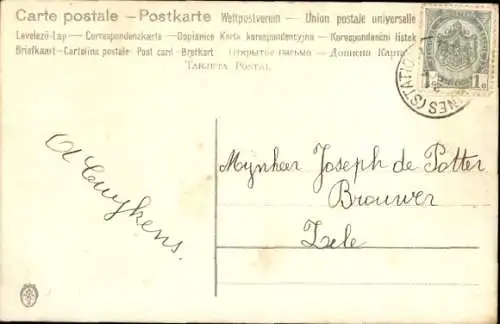 Carte postale – Postkarte Weltpostverein – Union postale universelle
Levelező-Lap – Correspondenzkarte – Dopisnice Karta korespondencyjna – Korespondenční lístek
Briefkaart – Cartolina postale – Post card – Brefkort – Открытое письмо – Дописна Карта
Tarjeta Postal
(STATION
NES
1
A Cuykens.
Mijnheer Joseph de Potter
Brouwer
Zele